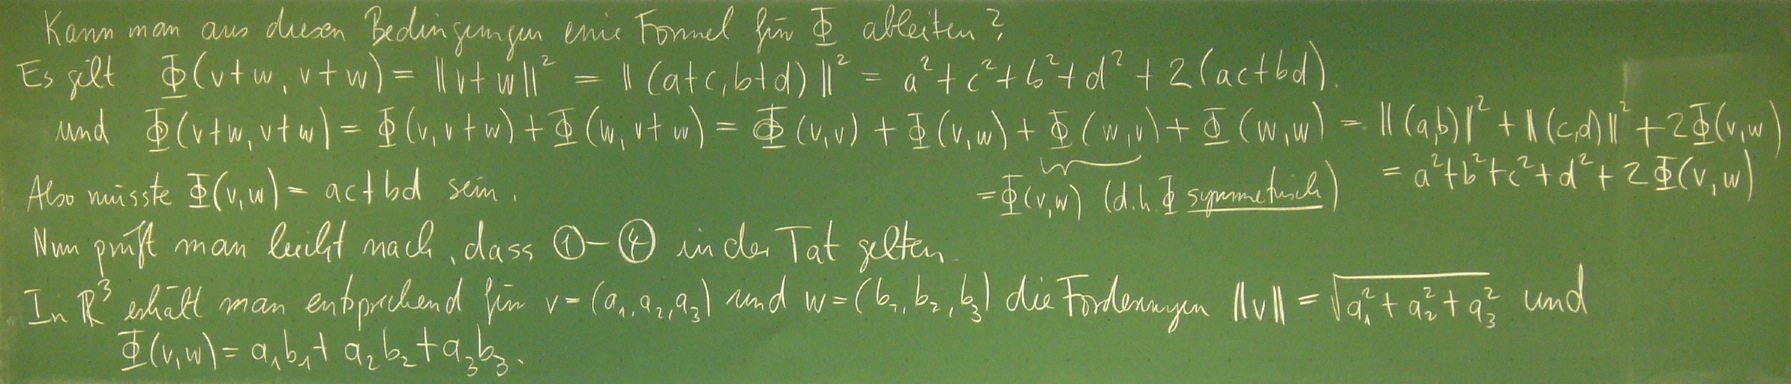 Kann man aus diesen Bedingungen eine Formel für Φ ableiten?
Es gilt Φ(v+w, v+w) = ‖v+w‖² = ‖(a+c, b+d)‖² = a²+c²+b²+d²+2(ac+bd).
und Φ(v+w, v+w) = Φ(v, v+w) + Φ(w, v+w) = Φ(v,v) + Φ(v,w) + Φ(w,v) + Φ(w,w) = ‖(a,b)‖² + ‖(c,d)‖² + 2Φ(v,w)
= a²+b²+c²+d²+2Φ(v,w)
=Φ(v,w) (d.h. Φ symmetrisch)
Also müsste Φ(v,w) = ac+bd sein.
Nun prüft man leicht nach, dass ①–④ in der Tat gelten.
In ℝ³ erhält man entsprechend für v=(a₁,a₂,a₃) und w=(b₁,b₂,b₃) die Forderungen ‖v‖ = √(a₁²+a₂²+a₃²) und
Φ(v,w) = a₁b₁+a₂b₂+a₃b₃.